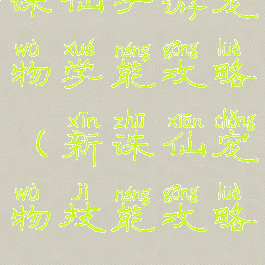 诛仙手游宠
wù xué néng gōng lüè
物学能攻略
xīn zhū xiān chǒng
（新诛仙宠
wù jì néng gōng lüè
物技能攻略